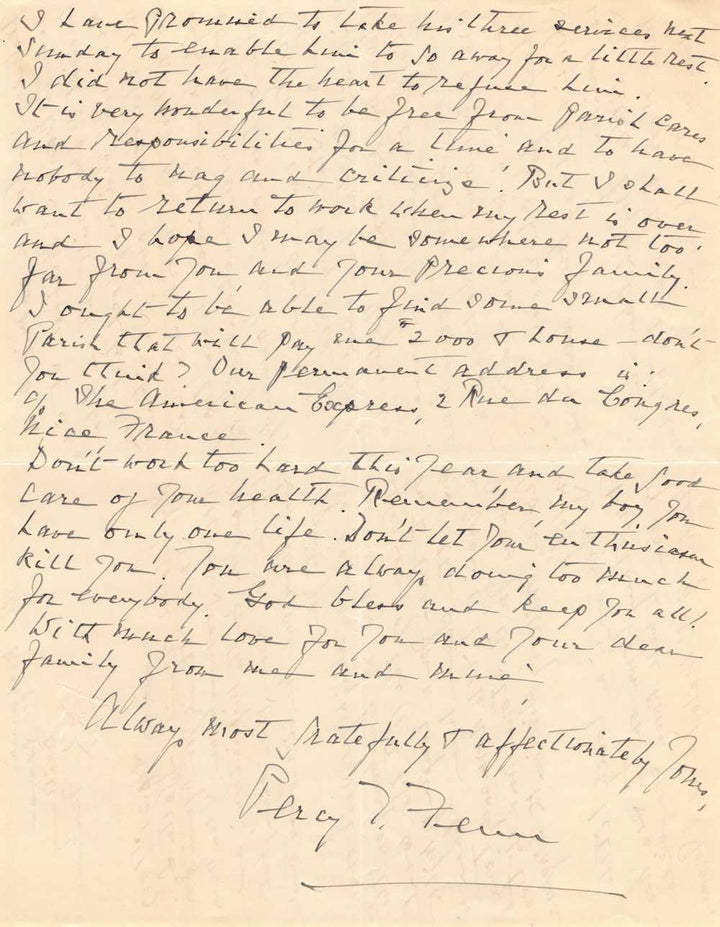 I have promised to take his three services next
Sunday to enable him to go away for a little rest.
I did not have the heart to refuse him.
It is very wonderful to be free from parish cares
and responsibilities for a time and to have
nobody to nag and criticize! But I shall
want to return to work when my rest is over
and I hope I may be somewhere not too
far from you and your precious family.
I ought to be able to find some small
Parish that will pay me $2000 & house – don't
you think? Our permanent address is
c/o The American Express, 2 Rue du Congres,
Nice, France.
Don't work too hard this year, and take good
care of your health. Remember, my boy, you
have only one life. Don't let your enthusiasm
kill you. You are always doing too much
for everybody. God bless and keep you all!
With much love for you and your dear
family from me and mine,
Always most gratefully & affectionately yours,
Percy T. Fenn